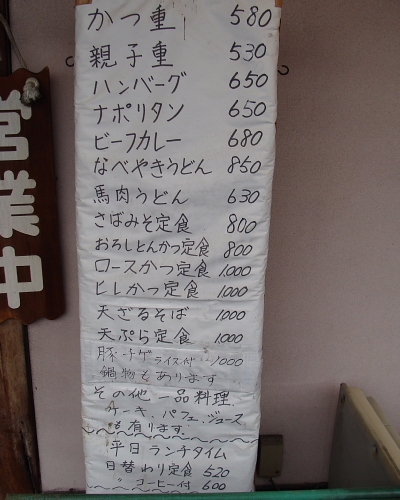 営業中
かつ重 580
親子重 530
ハンバーグ 650
ナポリタン 650
ビーフカレー 680
なべやきうどん 850
馬肉うどん 630
さばみそ定食 800
おろしとんかつ定食 800
ロースかつ定食 1,000
ヒレかつ定食 1,000
天ざるそば 1,000
天ぷら定食 1,000
豚チゲ ライス付・・1000
鍋物もあります
その他一品料理.
ケーキ、パフェ、ジュース
も有ります.
平日ランチタイム
日替わり定食 520
〃 コーヒー付 600